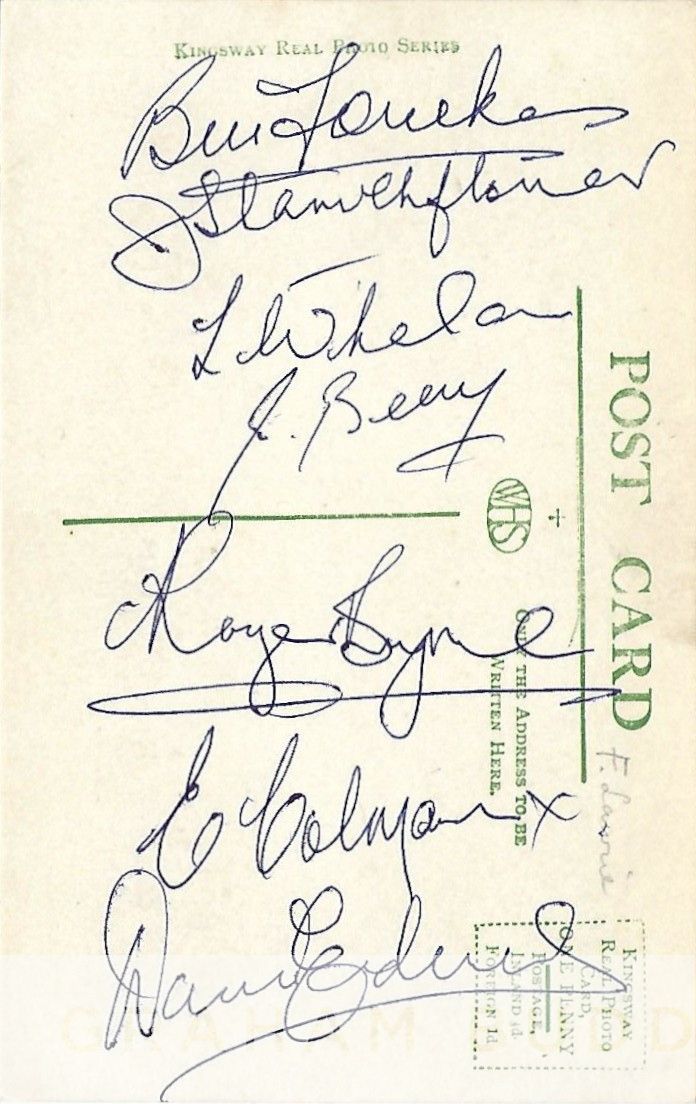 KINGSWAY REAL PHOTO SERIES
Bill Foulkes
J Blanchflower
L Whelan
J. Berry
Roger Byrne
E Colman x
Duncan Edwards
POST CARD
WHS
ONLY THE ADDRESS TO BE
WRITTEN HERE.
F. Lawrie
KINGSWAY
REAL PHOTO
CARD,
ONE PENNY
POSTAGE,
INLAND ½d.
FOREIGN 1d.
GRAHAM BUDD